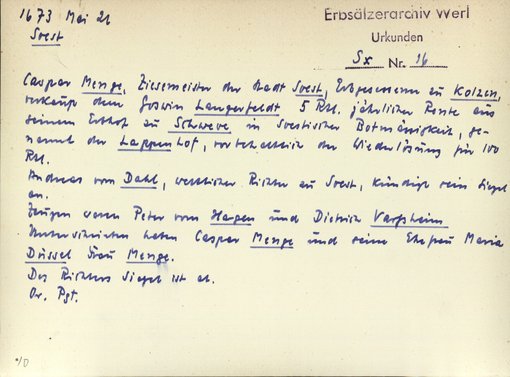 1673 Mai 21
Soest
Erbsälzerarchiv Werl
Urkunden
Sx Nr. 16
Caspar Menge, Ziesemeister der Stadt Soest, Erbgesessen zu Kolzen,
verkauft dem Goswin Langerfeldt 5 Rtl. jährlicher Rente aus
seinem Erbhof zu Schweve in Soestischer Botmäsigkeit, ge-
nannt der Lappenhof, vorbehaltlich der Wiederlösung für 100
Rtl.
Andreas von Dahl, weltlicher Richter zu Soest, kündigt sein Siegel
an.
Zeugen waren Peter vom Hagen und Dietrich Varssheim
Unterschrieben haben Caspar Menge und seine Ehefrau Maria
Düssel Frau Menge.
Des Richters Siegel ist ab.
Or. Pgt.